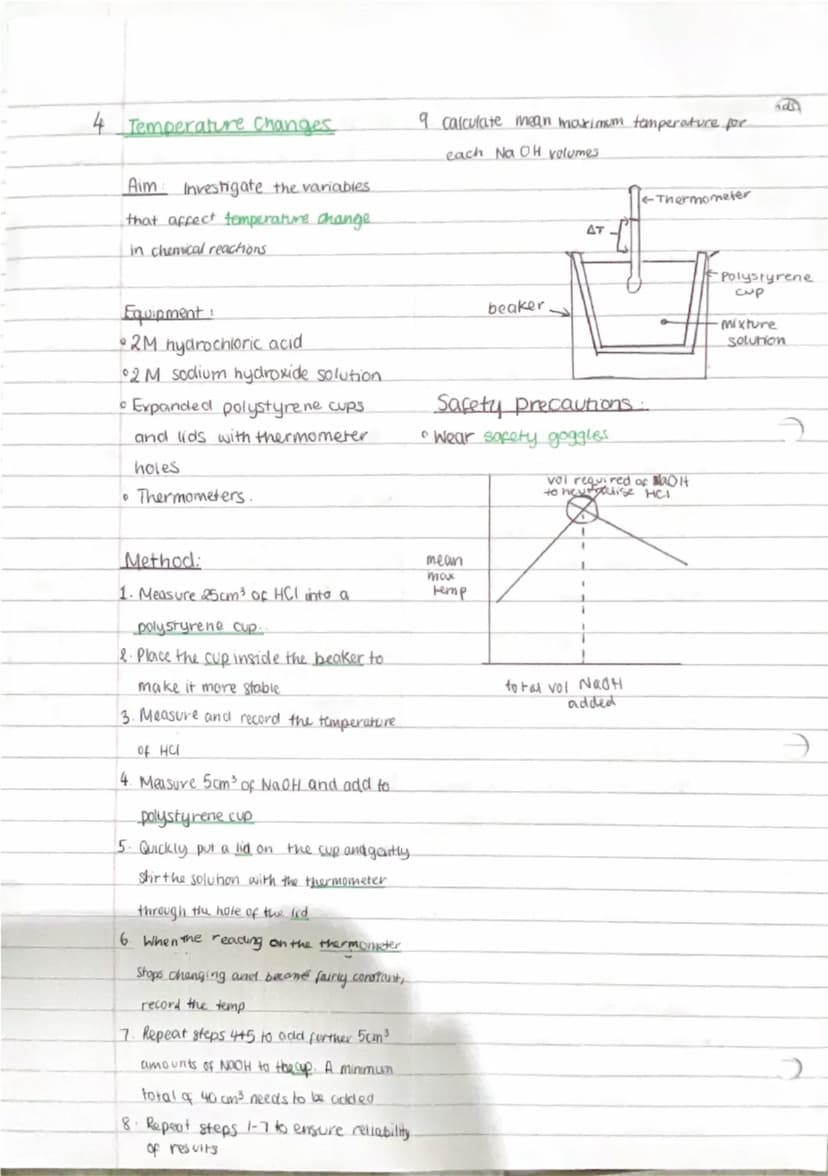 4 Temperature Changes
Aim: Investigate the variables
that affect temperature change
in chemical reactions
Equipment:
• 2M hydrochloric acid
• 2M sodium hydroxide solution
• Expanded polystyrene cups
and lids with thermometer
holes
• Thermometers.
Method:
1. Measure 25cm³ of HCl into a
polystyrene cup.
2. Place the cup inside the beaker to
make it more stable
3. Measure and record the temperature
of HCl
4. Measure 5cm³ of NaOH and add to
polystyrene cup
5. Quickly put a lid on the cup and gently
stir the solution with the thermometer
through the hole of the lid
6. When the reading on the thermometer
stops changing and become fairly constant,
record the temp
7. Repeat steps 4+5 to add further 5cm³
amounts of NaOH to the cup. A minimum
total of 40 cm³ needs to be added
8. Repeat steps 1-7 to ensure reliability
of results
9 calculate mean maximum temperature for
each NaOH volumes
Thermometer
ΔT
Polystyrene
cup
beaker
mixture
solution
Safety precautions:
• Wear safety goggles
vol required of NaOH
to neutralise HCl
mean
max
temp
total vol NaOH
added